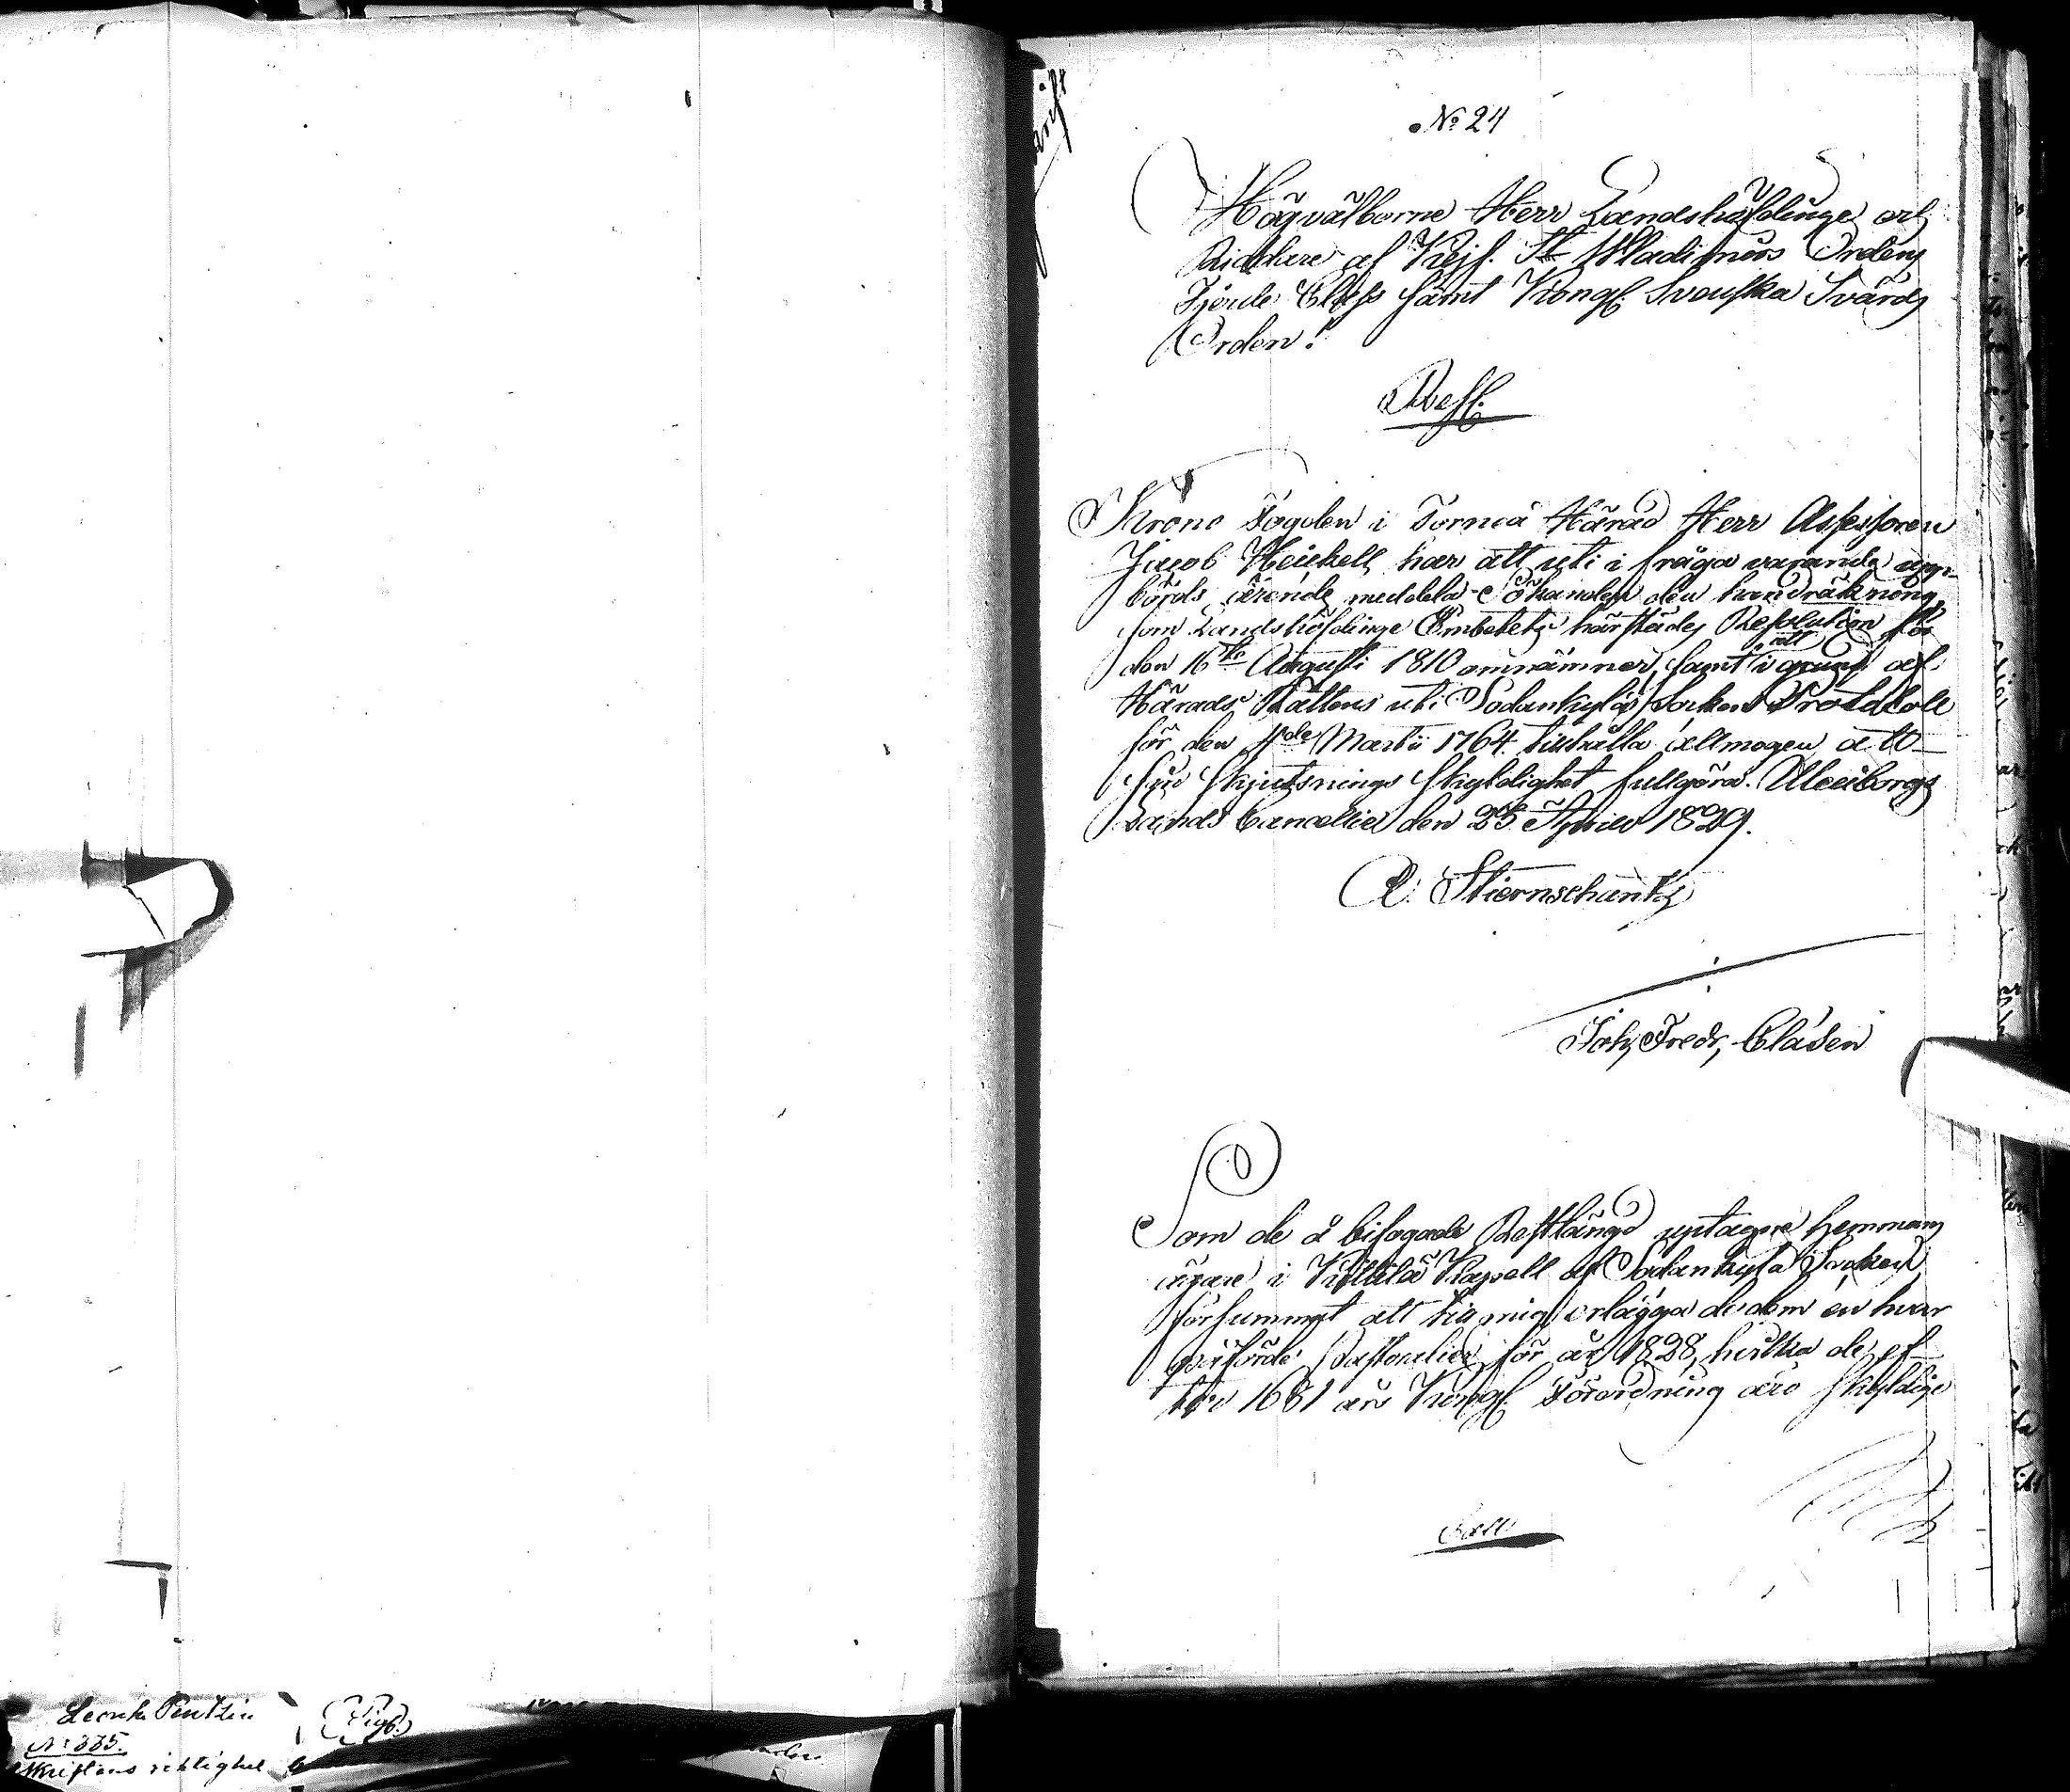 No 24
Högvälborne Herr Landshöfdinge och
Riddare af Kejs. St Wladimirs Ordens
Fjerde Class samt Kongl. Svenska Svärds
Orden!
Resl.
Krono Fogden i Torneå Härad Herr Assessoren
Jacob Heickell har att uti i fråga varande upp-
börds ärende meddela Sökanden den handräkning,
som Landshöfdinge Embetets härstädes Resolution för
den 16de Augusti 1810 omnämner, samt att i grund af
Härads Rättens uti Sodankylä Socken Protocoll
för den 4de Martii 1764 tillhålla allmogen att
sin skjutsnings skyldighet fullgöra. Uleåborgs
Lands Cancellie den 25 April 1829.
R: Stiernschantz
Joh, Fredr, Clasén
Som de å bifogade Restlängd uptagne Hemmans
ägare i Kittilä Kapell af Sodankylä Socken
försummat att till mig erlägga de dem en hvar
påförde för år 1828, hvilka de ef-
ter 1681 års Kongl. Förordning äro skyldige
Leonh. Pentzin
No 335.
Skriftens riktighet
(Sigb.)